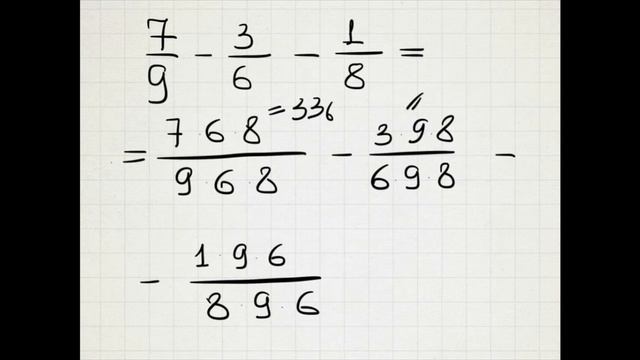 7/9 - 3/6 - 1/8 =
= 7·6·8/9·6·8 = 336 - 3·9·8/6·9·8 = -
- 1·9·6/8·9·6